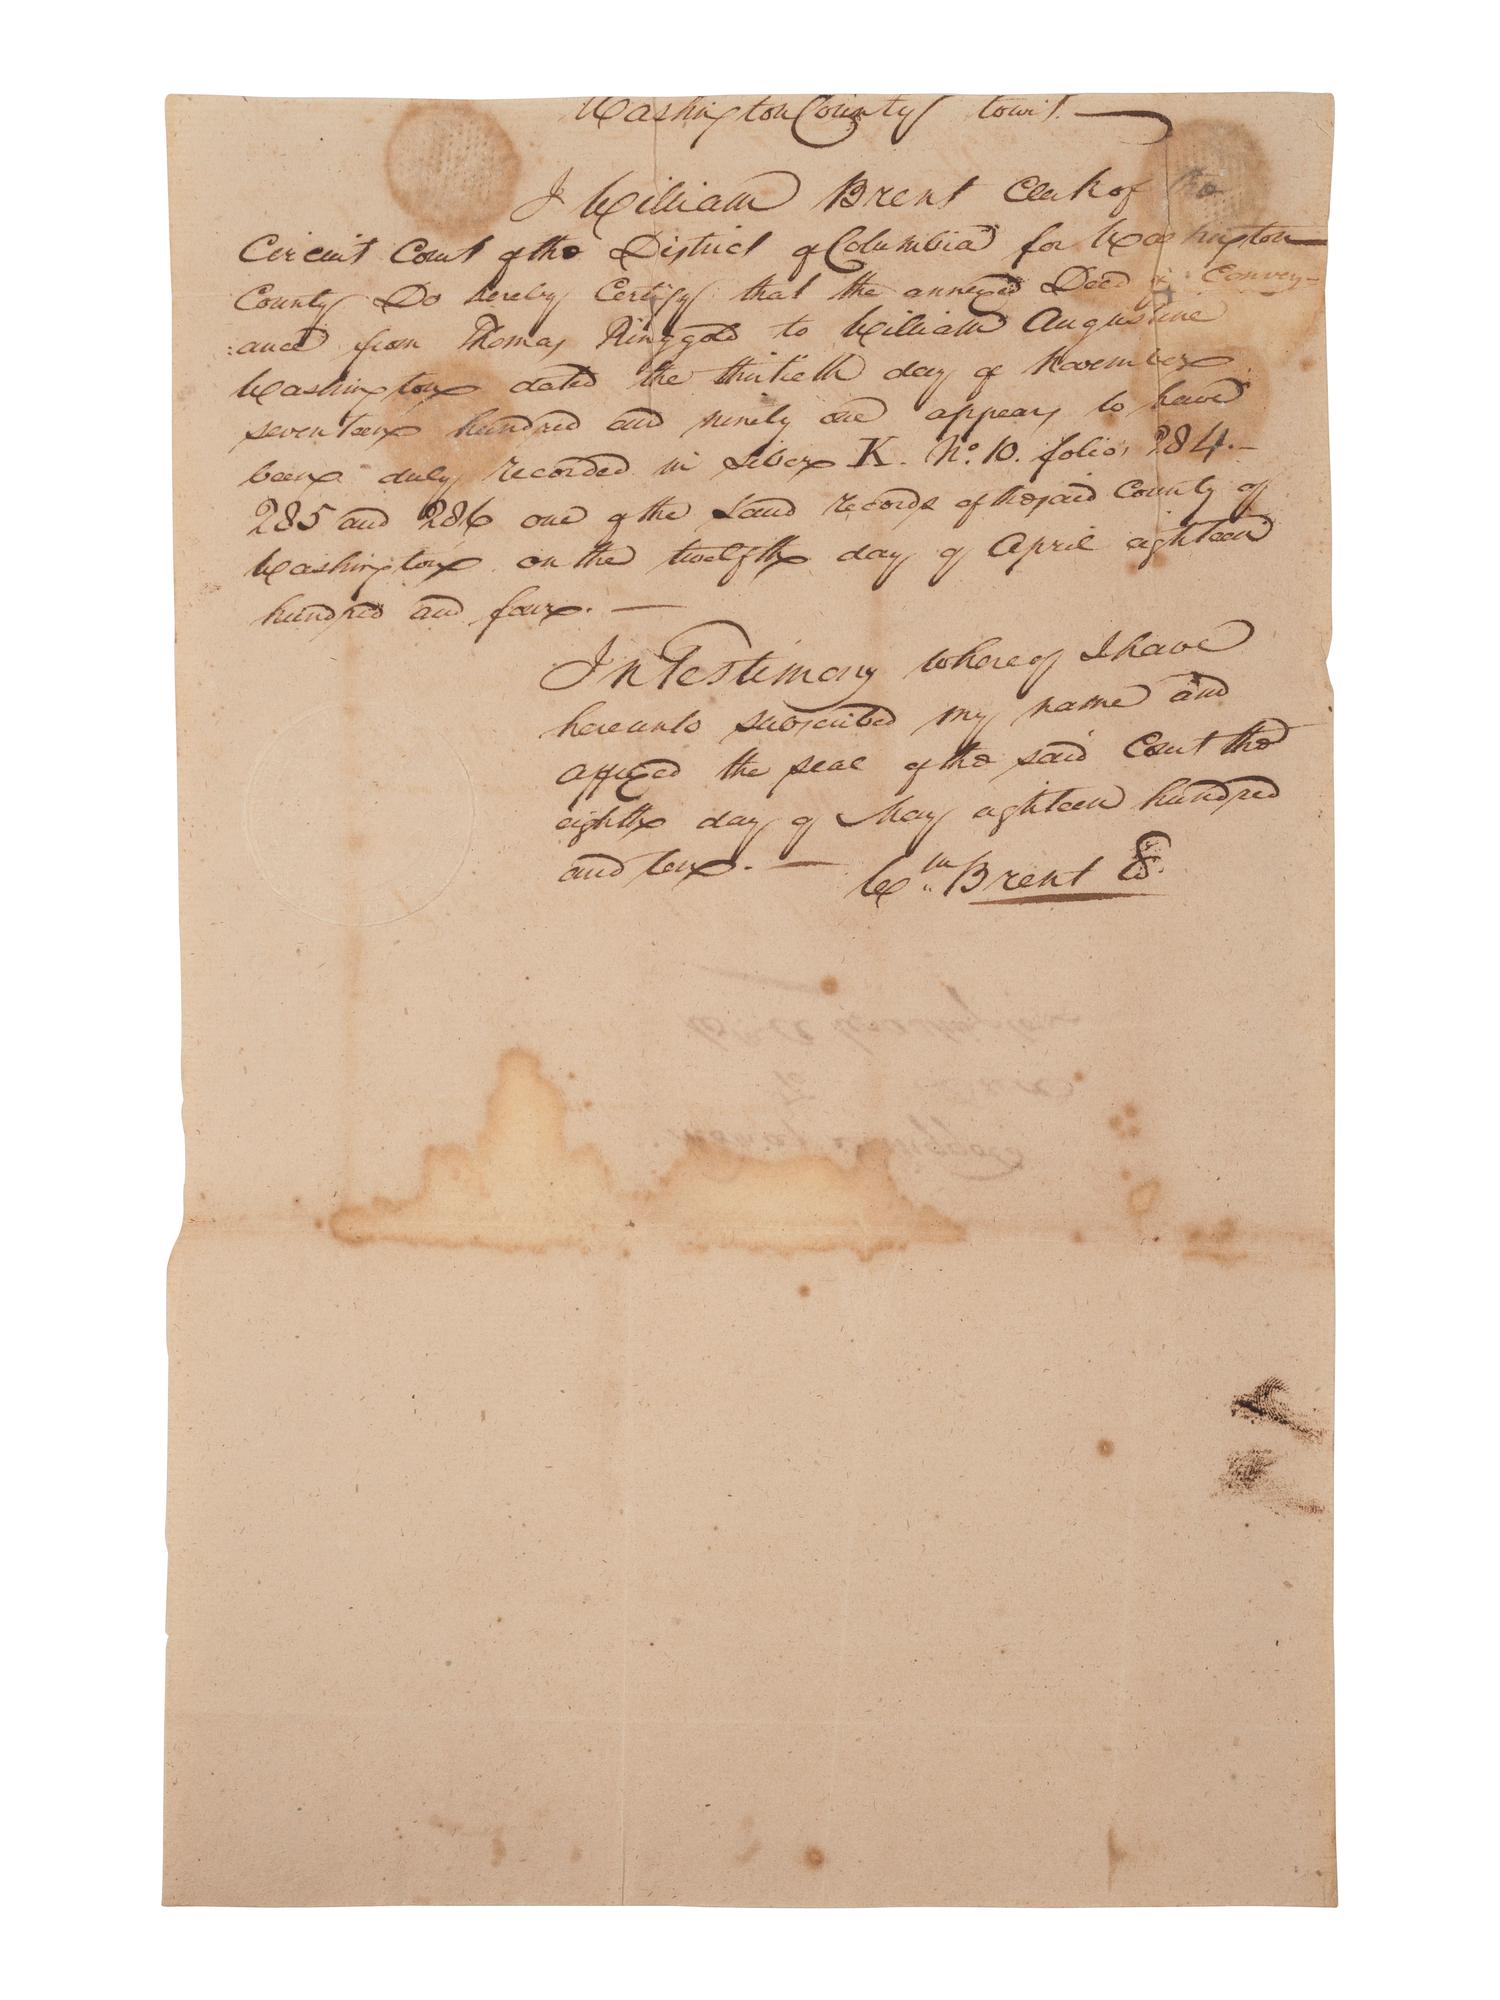 Washington County towit. —
I William Brent Clerk of the
Circuit Court of the District of Columbia for Washington
County Do hereby Certify that the annexed Deed of Convey-
:ance from Thomas Ringgold to William Augustine
Washington dated the thirtieth day of November
seventeen hundred and ninety one appears to have
been duly recorded in Liber K. No. 10. folios 284.-
285 and 286 one of the Land records of the said County of
Washington on the twelfth day of April eighteen
hundred and four. —
In Testimony whereof I have
hereunto subscribed my name and
affixed the seal of the said Court the
eighth day of May eighteen hundred
and ten. — Wm. Brent
Will Washington
to
Thomas Ringgold